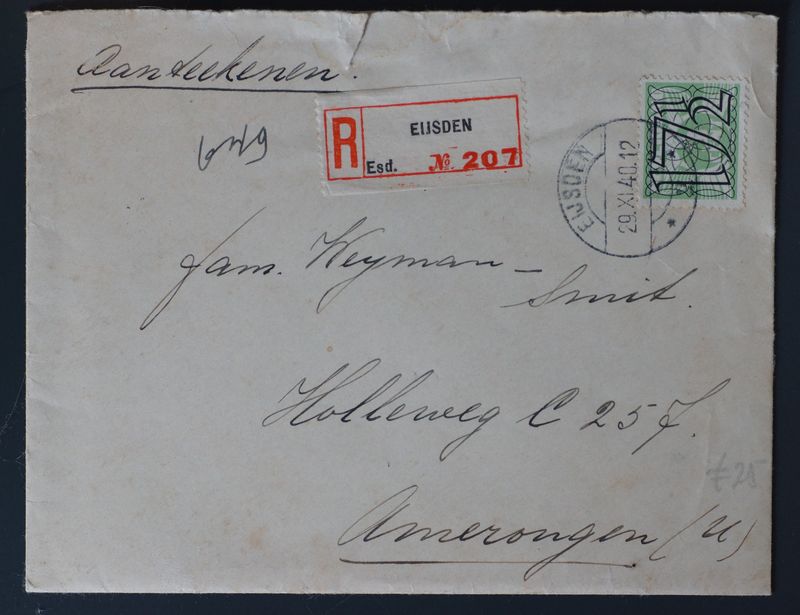 Aanteekenen.
R
EIJSDEN
Esd. № 207
17½
EIJSDEN
29.XI.40.12
649
fam. Weyman –
Smit.
Holleweg C 257.
Amerongen (U)